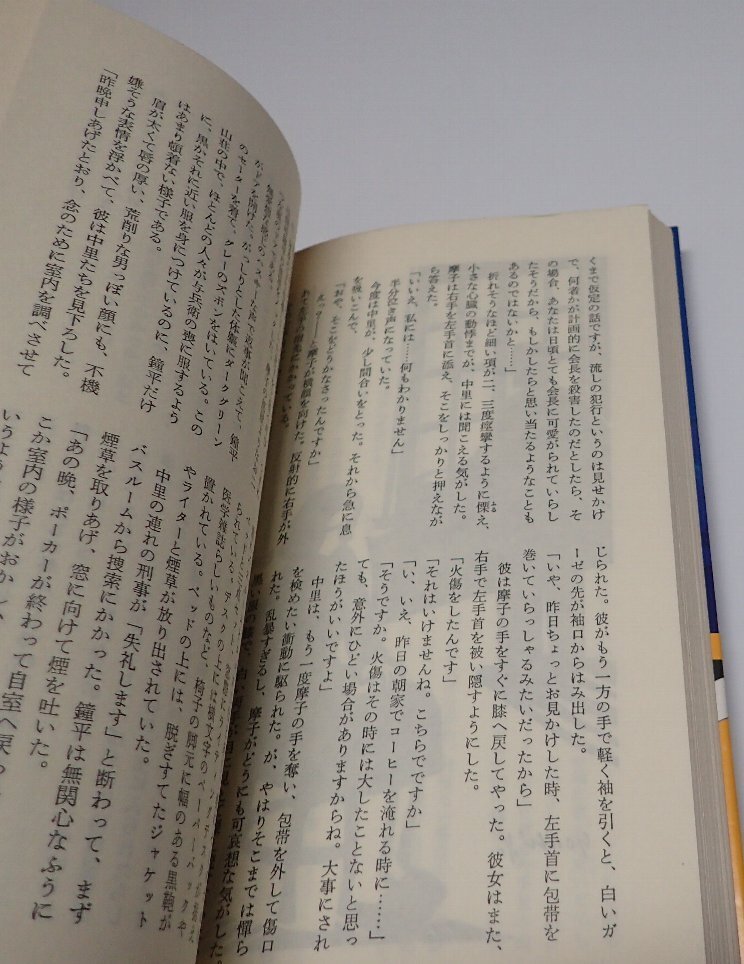 くまで仮定の話ですが、流しの犯行というのは見せかけ
で、何者かが計画的に会長を殺害したのだとしたら、そ
の場合、あなたは日頃とても会長に可愛がられていらし
たそうだから、もしかしたらと思い当たるようなことも
あるのではないかと……」
折れそうなほど細い項が二、三度痙攣するように慄え、
小さな心臓の動悸までが、中里には聞こえる気がした。
摩子は右手を左手首に添え、そこをしっかりと押えなが
ら答えた。
「いいえ、私には……何もわかりません」
半分泣き声になっていた。
今度は中里が、少し間合いをとった。それから急に息
を吸いこんで、
「おや、そこをどうかなさったんですか」
えっ
と摩子が横顔を向けた。反射的に右手が外
じられた。彼がもう一方の手で軽く袖を引くと、白いガ
ーゼの先が袖口からはみ出した。
「いや、昨日ちょっとお見かけした時、左手首に包帯を
巻いていらっしゃるみたいだったから」
彼は摩子の手をすぐに膝へ戻してやった。彼女はまた、
右手で左手首を被い隠すようにした。
「火傷をしたんです」
「それはいけませんね。こちらでですか」
「い、いえ、昨日の朝家でコーヒーを淹れる時に……」
「そうですか。火傷はその時には大したことないと思っ
ても、意外にひどい場合がありますからね。大事にされ
たほうがいいですよ」
中里は、もう一度摩子の手を奪い、包帯を外して傷口
を検めたい衝動に駆られた。が、やはりそこまでは憚ら
れた。乱暴すぎるし、摩子がどうにも可哀想な気がした。
のセーターを着て、グレーのズボンをはいている。この
山荘の中で、ほとんどの人々が与兵衛の喪に服するよう
に、黒かそれに近い服を身につけているのに、鐘平だけ
はあまり頓着ない様子である。
眉が太くて唇の厚い、荒削りな男っぽい顔にも、不機
嫌そうな表情を浮かべて、彼は中里たちを見下ろした。
「昨晩申しあげたとおり、念のために室内を調べさせて
医学雑誌らしいものなど、椅子の脚元に幅のある黒鞄が
置かれている。ベッドの上には、脱ぎすてたジャケット
やライターと煙草が放り出されていた。
中里の連れの刑事が「失礼します」と断わって、まず
バスルームから捜索にかかった。鐘平は無関心なふうに
煙草を取りあげ、窓に向けて煙を吐いた。
「あの晩、ポーカーが終わって自室へ戻っ
こか室内の様子がおかし
いうよう